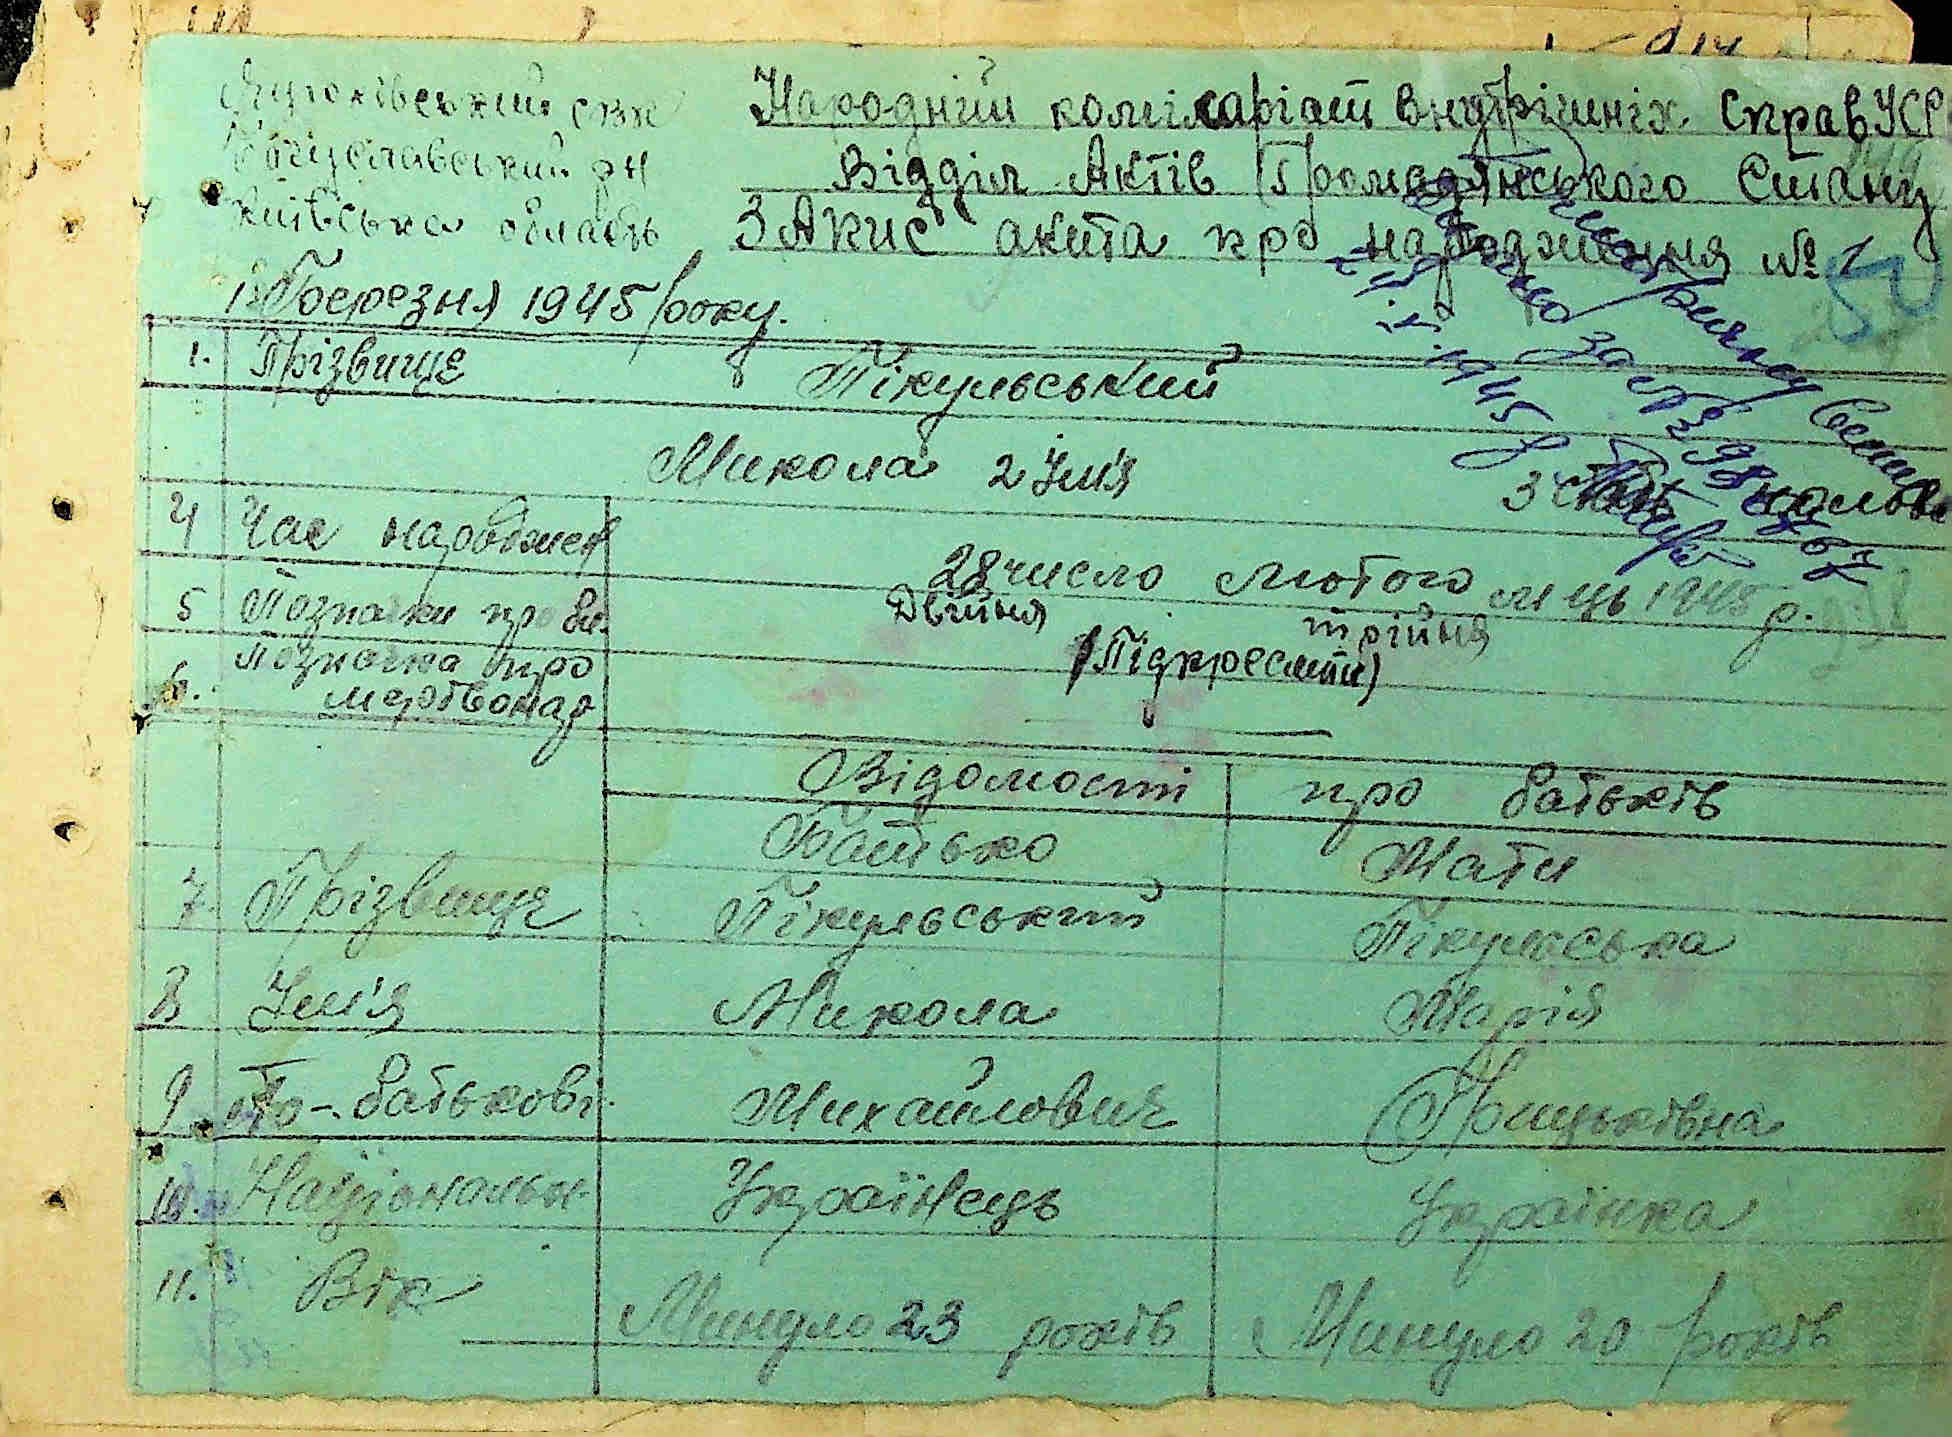 Яцюківський с
Богуславський рн
Київська область
Народній комісаріат внутрішніх справ УСР
Відділ Актів Громадянського Стану
ЗАпис акта про народження № 1
50
березня 1945 року.
1. Прізвище Пікульський
Микола 2 Ім'я 3 чолов
4 Час народжен 28 число лютого м ць 1945 р.
5 Позначки про бл. Двійня трійня
(Підкреслити)
6. Позначка про мертвонар
Відомості про батьків
Батько Мати
7 Прізвище Пікульський Пікульська
8 Ім'я Микола Марія
9 По-батькові Михайлович Грицьківна
10. Національн. Українець Українка
11. Вік Минуло 23 років Минуло 20 років
1945 р